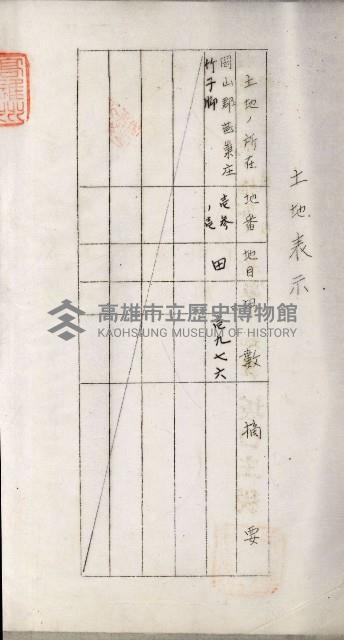 土地表示
土地ノ所在 地番 地目 甲 數 摘要
岡山郡燕巢庄 壱参 田 壱九七六
竹子脚 ノ壱
高雄市立歷史博物館
KAOHSIUNG MUSEUM OF HISTORY